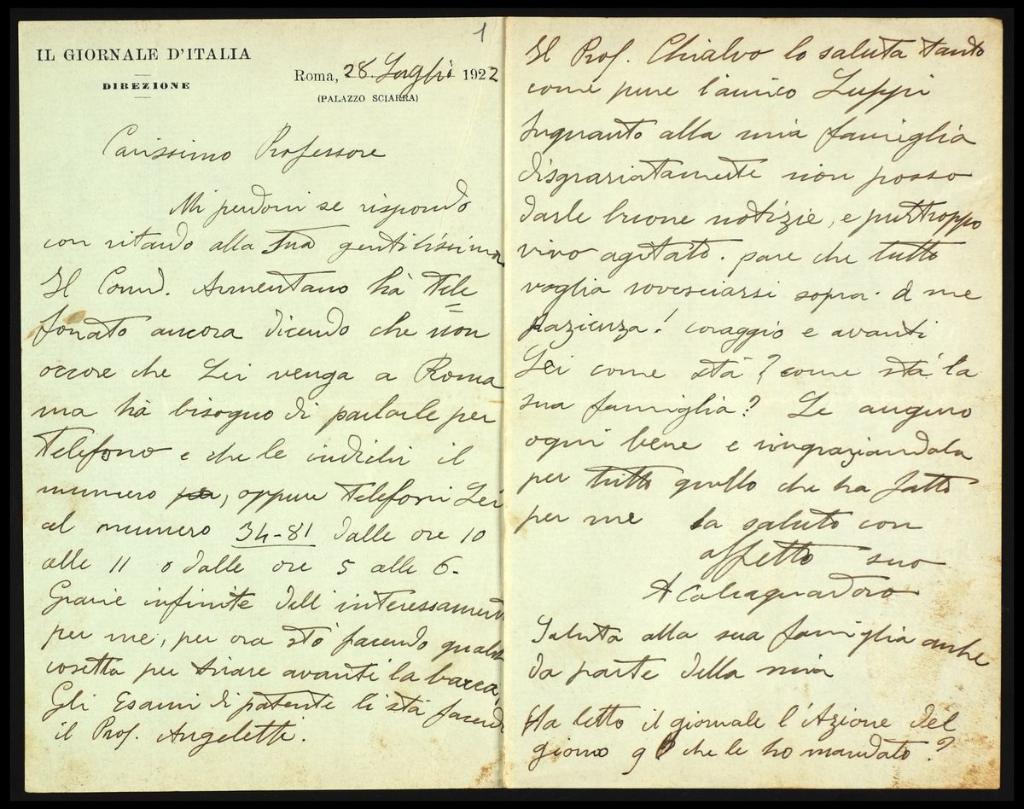 1
IL GIORNALE D'ITALIA
DIREZIONE
Roma, 28 Luglio 1922
(PALAZZO SCIARRA)
Carissimo Professore
Mi perdoni se rispondo
con ritardo alla Sua gentilissima
Il Comd. Armentano hà tele
fonato ancora dicendo che non
occore che Lei venga a Roma
ma hà bisogno di parlarle per
telefono e che le indichi il
numero, oppure telefoni Lei
al numero 34-81 dalle ore 10
alle 11 o dalle ore 5 alle 6.
Grazie infinite dell'interessamento
per me, per ora stò facendo qualche
cosetta per tirare avanti la barca,
Gli Esami di patente li stà facendo
il Prof. Angeletti.
Il Prof. Chialvo lo saluta tanto
come pure l'amico Luppi
Inquanto alla mia famiglia
disgraziatamente non posso
darle buone notizie, e purtroppo
vivo agitato. pare che tutto
voglia rovesciarsi sopra. d me
pazienza! coraggio e avanti
Lei come stà? come stà la
sua famiglia? Le auguro
ogni bene e ringraziandola
per tutto quello che ha fatto
per me la saluto con
affetto suo
A Calcagnadoro
Saluta alla sua famiglia anche
da parte della mia
Ha letto il giornale l'Azione del
giorno 9 che le ho mandato?